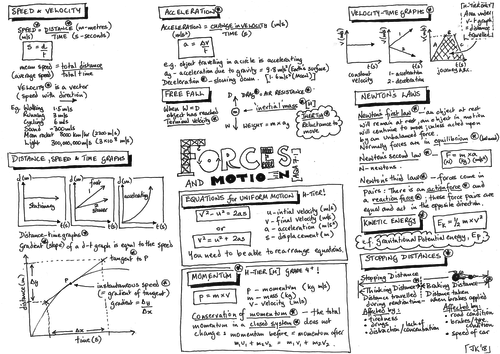 SPEED & VELOCITY
SPEED = DISTANCE (m-metres)
(m/s) TIME (s-seconds)
s = d/t
mean speed = total distance
(average speed) total time
VELOCITY is a vector
(speed with direction)
Eg. Walking 1.5 m/s
Running 3 m/s
Cycling 6 m/s
Sound 300 m/s
Light 300,000,000 m/s (3×10⁸ m/s)
DISTANCE, SPEED & TIME GRAPHS
d(m)
stationary
t(s)
d(m)
fast
slower
t(s)
d(m)
accelerating
t(s)
Distance-time graphs
Gradient (slope) of a d-t graph is equal to the speed
distance (m)
Δy
Δx
time (s)
tangent to P
instantaneous speed
(= gradient of tangent)
gradient = Δy
Δx
ACCELERATION
ACCELERATION = CHANGE IN VELOCITY (m/s)
(m/s²) TIME (s)
a = Δv/t
e.g. object travelling in a circle is accelerating
Deceleration - slowing down
FREE FALL
When W = D
object has reached
terminal velocity
D DRAG, AIR RESISTANCE
inertial mass [H]
W WEIGHT = m × g
INERTIA
Reluctance to
move
FORCES
AND MOTION
EQUATIONS FOR UNIFORM MOTION H-TIER!
v² - u² = 2as
or
v² - u² = 2as
u - initial velocity (m/s)
v - final velocity (m/s)
a - acceleration (m/s²)
s - displacement (m)
You need to be able to rearrange equations.
MOMENTUM H-TIER [H] GRADE 9!
p = m × v
p - momentum (kg m/s)
m - mass (kg)
v - velocity (m/s)
Conservation of momentum - the total
momentum in a closed system does not
change & momentum before = momentum after
m₁v₁ + m₂v₂ = m₁v₁ + m₂v₂
VELOCITY-TIME GRAPHS
[H-TIER ONLY]
Area under
v-t graph
= distance
travelled
constant
velocity
1- acceleration
2- deceleration
NEWTON'S LAWS
Newton's first law - an object at rest
will remain at rest, an object in motion
will continue to move unless acted upon
by an unbalanced force.
Normally forces are in equilibrium
Newton's second law
N - newtons
F = ma
Newton's third law - forces come in
Pairs: There is an action force and
a reaction force; these force pairs are
equal and act in the opposite direction.
KINETIC ENERGY
Eₖ = ½ m × v²
c.f. gravitational Potential energy, Eₚ
STOPPING DISTANCES
Stopping Distance
Thinking Distance
Distance travelled
during reaction time
Affected by:
tiredness
drugs
distraction/concentration
Braking Distance
Distance taken
when brakes applied
Affected by:
road condition
brakes/tyre
condition
speed of car
[JK'18]